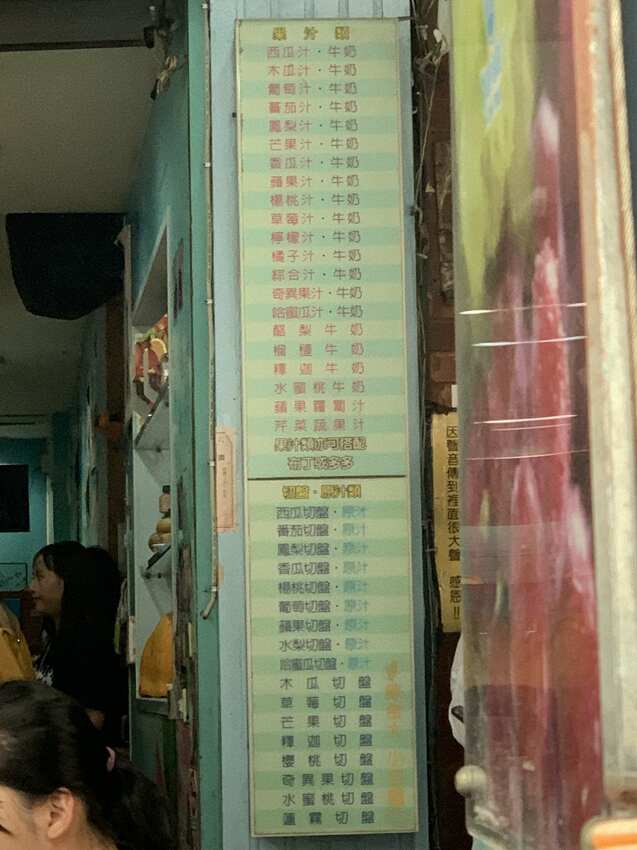 果汁類
西瓜汁·牛奶
木瓜汁·牛奶
葡萄汁·牛奶
蕃茄汁·牛奶
鳳梨汁·牛奶
芒果汁·牛奶
香瓜汁·牛奶
蘋果汁·牛奶
楊桃汁·牛奶
草莓汁·牛奶
檸檬汁·牛奶
橘子汁·牛奶
綜合汁·牛奶
奇異果汁·牛奶
哈蜜瓜汁·牛奶
酪梨牛奶
榴槤牛奶
釋迦牛奶
水蜜桃牛奶
蘋果蘿蔔汁
芹菜蔬果汁
果汁類亦可搭配
布丁或多多
切盤·原汁類
西瓜切盤·原汁
蕃茄切盤·原汁
鳳梨切盤·原汁
香瓜切盤·原汁
楊桃切盤·原汁
葡萄切盤·原汁
蘋果切盤·原汁
水梨切盤·原汁
哈蜜瓜切盤·原汁
木瓜切盤
草莓切盤
芒果切盤
釋迦切盤
櫻桃切盤
奇異果切盤
水蜜桃切盤
蓮霧切盤
因聲音傳到裡面很大聲 感恩!!